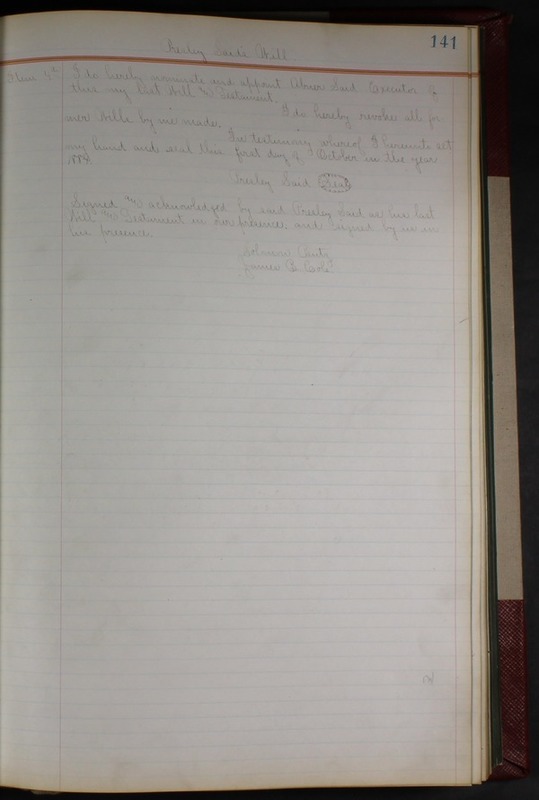 141
Presley Said's Will.
Item 3rd I do hereby nominate and appoint Abner Said Executor of
this my last Will and Testament.
I do hereby revoke all for-
mer Wills by me made.
In testimony whereof I hereunto set
my hand and seal this first day of October in the year
Presley Said Seal
Signed and acknowledged by said Presley Said as his last
Will and Testament in our presence and signed by us in
his presence.
Solomon
James B.